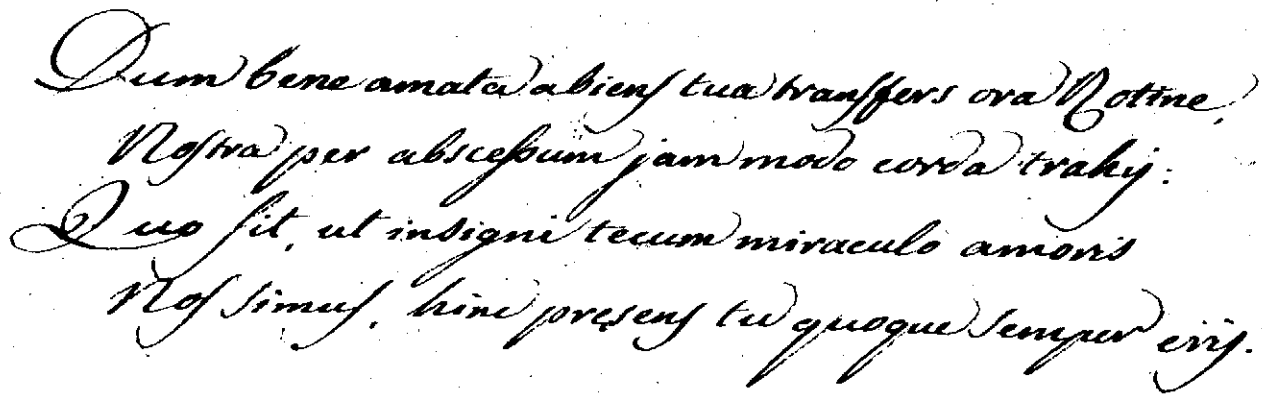 Dum bene amata abiens tua transfers ora Rotine,
Nostra per abscessum jam modo corda trahis:
Quo fit, ut insigni tecum miraculo amoris
Nos simus, hinc pręsens tu quoque semper eris.